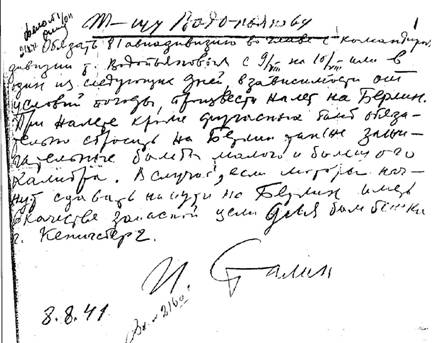 Т-щу Водопьянову
Обязать 81 авиадивизию во главе с командиром
дивизии т. Водопьяновым с 9/VIII на 10/VIII или в
один из следующих дней в зависимости от
условий погоды, произвести налет на Берлин.
При налете кроме фугасных бомб обяза-
тельно сбросить на Берлин также зажи-
гательные бомбы малого и большого
калибра. В случае, если моторы нач-
нут сдавать на пути на Берлин иметь
в качестве запасной цели для бомбежки
г. Кенигсберг.
И. Сталин
8.8.41